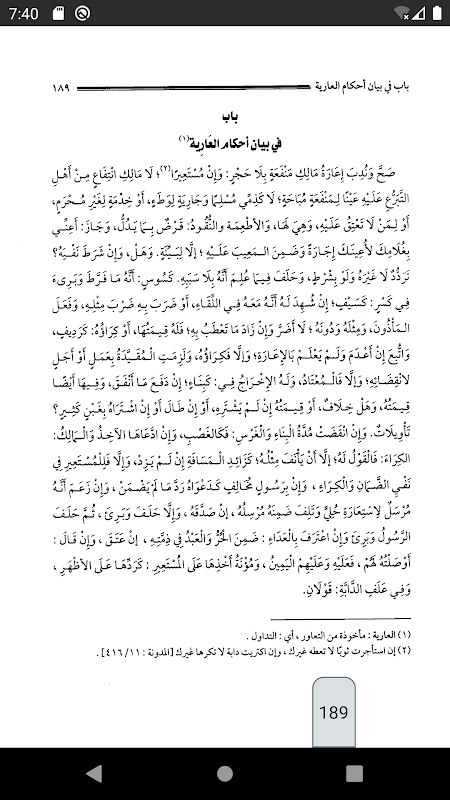 7:40
باب في بيان أحكام العارية ١٨٩
باب
في بيان أحكام العَارِية(١)
صَحَّ وَنُدِبَ إِعَارَةُ مَالِكِ مَنْفَعَةٍ بِلَا حَجْرٍ: وَإِنْ مُسْتَعِيرًا(٢)؛ لَا مَالِكِ انْتِفَاعٍ مِنْ أَهْلِ
التَّبَرُّعِ عَلَيْهِ عَيْنًا لِمَنْفَعَةٍ مُبَاحَةٍ؛ لَا كَذِمِّي مُسْلِمًا وَجَارِيَةٍ لِوَطْءٍ، أَوْ خِدْمَةٍ لِغَيْرِ مُحْرَمٍ،
أَوْ لِمَنْ لَا تَعْتِقُ عَلَيْهِ، وَهِيَ لَهَا، وَالأَطْعِمَةُ وَالنُّقُودُ: قَرْضٌ بِمَا يَدُلُّ، وَجَازَ: أَعِنِّي
بِغُلَامِكَ لأُعِينَكَ إِجَارَةً وَضَمِنَ الـمَغِيبَ عَلَيْهِ؛ إِلَّا لِبَيِّنَةٍ. وَهَلْ، وَإِنْ شَرَطَ نَفْيَهُ؟
تَرَدُّدٌ لَا غَيْرَهُ وَلَوْ بِشَرْطٍ، وَحَلَفَ فِيمَا عُلِمَ أَنَّهُ بِلَا سَبَبِهِ. كَسُوسٍ: أَنَّهُ مَا فَرَّطَ وَبَرِىءَ
فِي كَسْرِ: كَسَيْفٍ؛ إِنْ شُهِدَ لَهُ أَنَّهُ مَعَهُ فِي اللِّقَاءِ، أَوْ ضَرَبَ بِهِ ضَرْبَ مِثْلِهِ، وَفَعَلَ
الـمَأْذُونَ، وَمِثْلَهُ وَدُونَهُ؛ لَا أَضَرَّ وَإِنْ زَادَ مَا تَعْطَبُ بِهِ؛ فَلَهُ قِيمَتُهَا، أَوْ كِرَاؤُهُ: كَرَدِيفٍ،
وَاتُّبِعَ إِنْ أَعْدَمَ وَلَمْ يَعْلَمْ بِالإِعَارَةِ؛ وَإِلَّا فَكِرَاؤُهُ، وَلَزِمَتِ الْـمُقَيَّدَةُ بِعَمَلٍ أَوْ أَجَلٍ
لانْقِضَائِهِ؛ وَإِلَّا فَالْـمُعْتَادُ، وَلَهُ الإِخْرَاجُ فِي: كَبِنَاءٍ؛ إِنْ دَفَعَ مَا أَنْفَقَ، وَفِيهَا أَيْضًا
قِيمَتُهُ، وَهَلْ خِلَافٌ، أَوْ قِيمَتُهُ إِنْ لَمْ يَشْتَرِهِ، أَوْ إِنْ طَالَ أَوْ إِنْ اشْتَرَاهُ بِغَبْنٍ كَثِيرٍ؟
تَأْوِيلَاتٌ. وَإِنْ انْقَضَتْ مُدَّةُ الْبِنَاءِ وَالْغَرْسِ: فَكَالْغَصْبِ، وَإِنْ ادَّعَاهَا الآخِذُ وَالْـمَالِكُ:
الكِرَاءَ: فَالقَوْلُ لَهُ؛ إِلَّا أَنْ يَأْنَفَ مِثْلُهُ: كَزَائِدِ الـمَسَافَةِ إِنْ لَمْ يَزِدْ، وَإِلَّا فَلِلْمُسْتَعِيرِ فِي
نَفْيِ الضَّمَانِ وَالْكِرَاءِ ، وَإِنْ بِرَسُولٍ مُخَالِفٍ كَدَعْوَاهُ رَدَّ مَا لَمْ يَضْمَنْ ، وَإِنْ زَعَمَ أَنَّهُ
مُرْسَلٌ لِاسْتِعَارَةِ حُلِيٍّ وَتَلِفَ ضَمِنَهُ مُرْسِلُهُ ، إِنْ صَدَّقَهُ ، وَإِلَّا حَلَفَ وَبَرِئَ ، ثُمَّ حَلَفَ
الرَّسُولُ وَبَرِئَ وَإِنْ اعْتَرَفَ بِالْعَدَاءِ : ضَمِنَ الحُرُّ وَالْعَبْدُ فِي ذِمَّتِهِ ، إِنْ عَتَقَ ، وَإِنْ قَالَ :
أَوْصَلْتُهُ لَهُمْ ، فَعَلَيْهِ وَعَلَيْهِمُ الْيَمِينُ ، وَمُؤْنَةُ أَخْذِهَا عَلَى الْمُسْتَعِيرِ : كَرَدِّهَا عَلَى الأَظْهَرِ ،
وَفِي عَلَفِ الدَّابَّةِ: قَوْلَانِ.
(١) العارية : مأخوذة من التعاور ، أي : التداول .
(٢) إن استأجرت ثوبًا لا تعطه غيرك ، وإن اكتريت دابة لا تكرها غيرك [المدونة : ١١/ ٤١٦] .
189